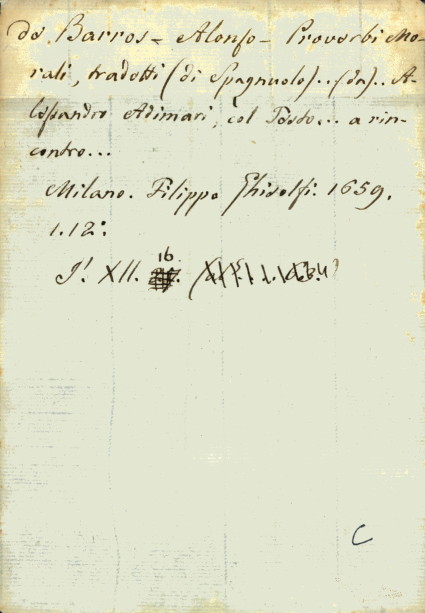 de Barros - Alonso - Proverbi Mo-
rali, tradotti (di Spagnuolo).. (da).. A-
lessandro Adimari, col Testo... a rin-
contro...
Milano. Filippo Ghisolfi. 1659.
1.12°.
16
J! XII.
C